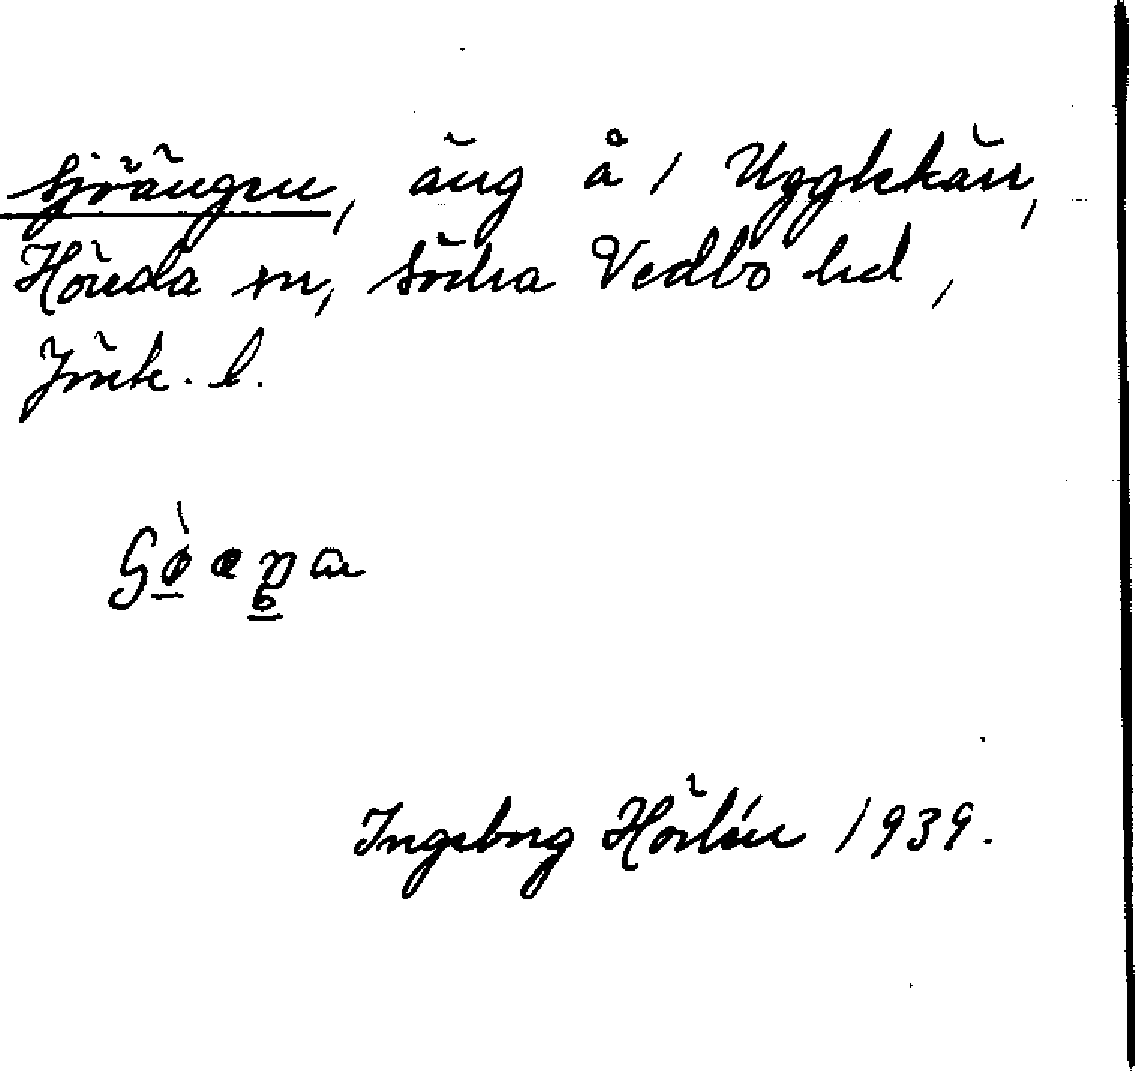 Sjöängen, äng å 1 Ugglekärr,
Höreda sn, Södra Vedbo hd,
Jönk. l.
Ingeborg Hörlén 1939.